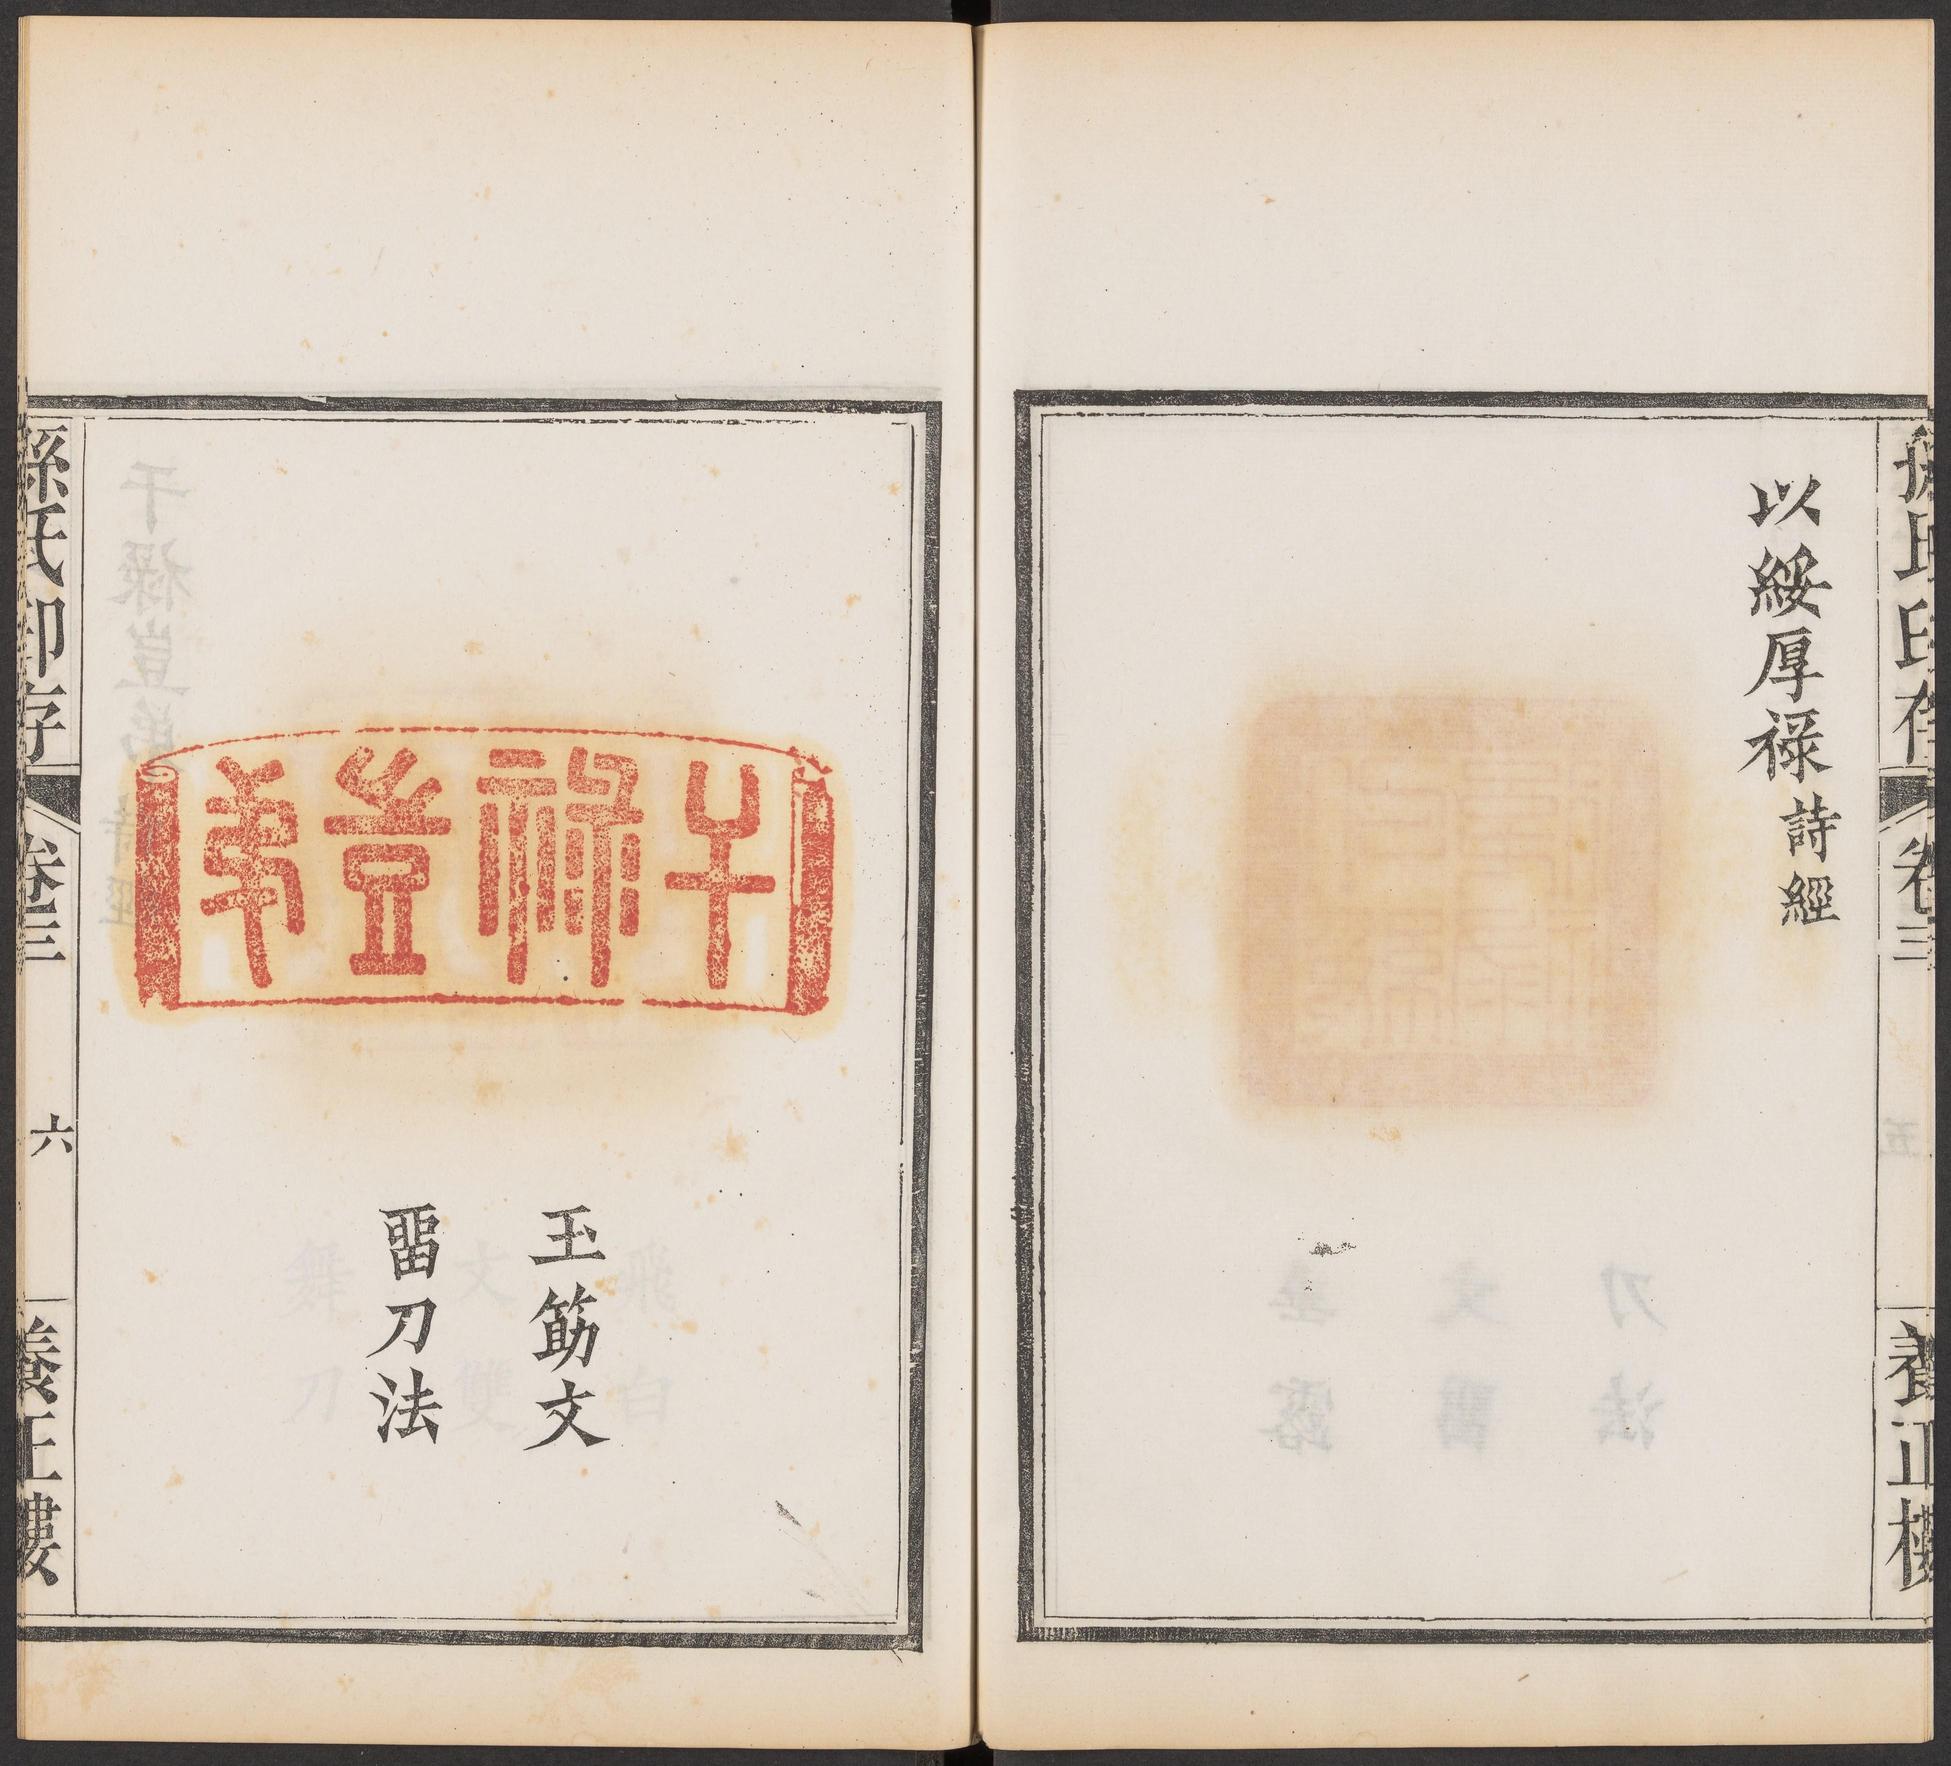 孫氏印存 卷三 養正樓
以綏厚祿 詩經
干祿豈弟
玉筯文
畱刀法
孫氏印存 卷三 六 養正樓